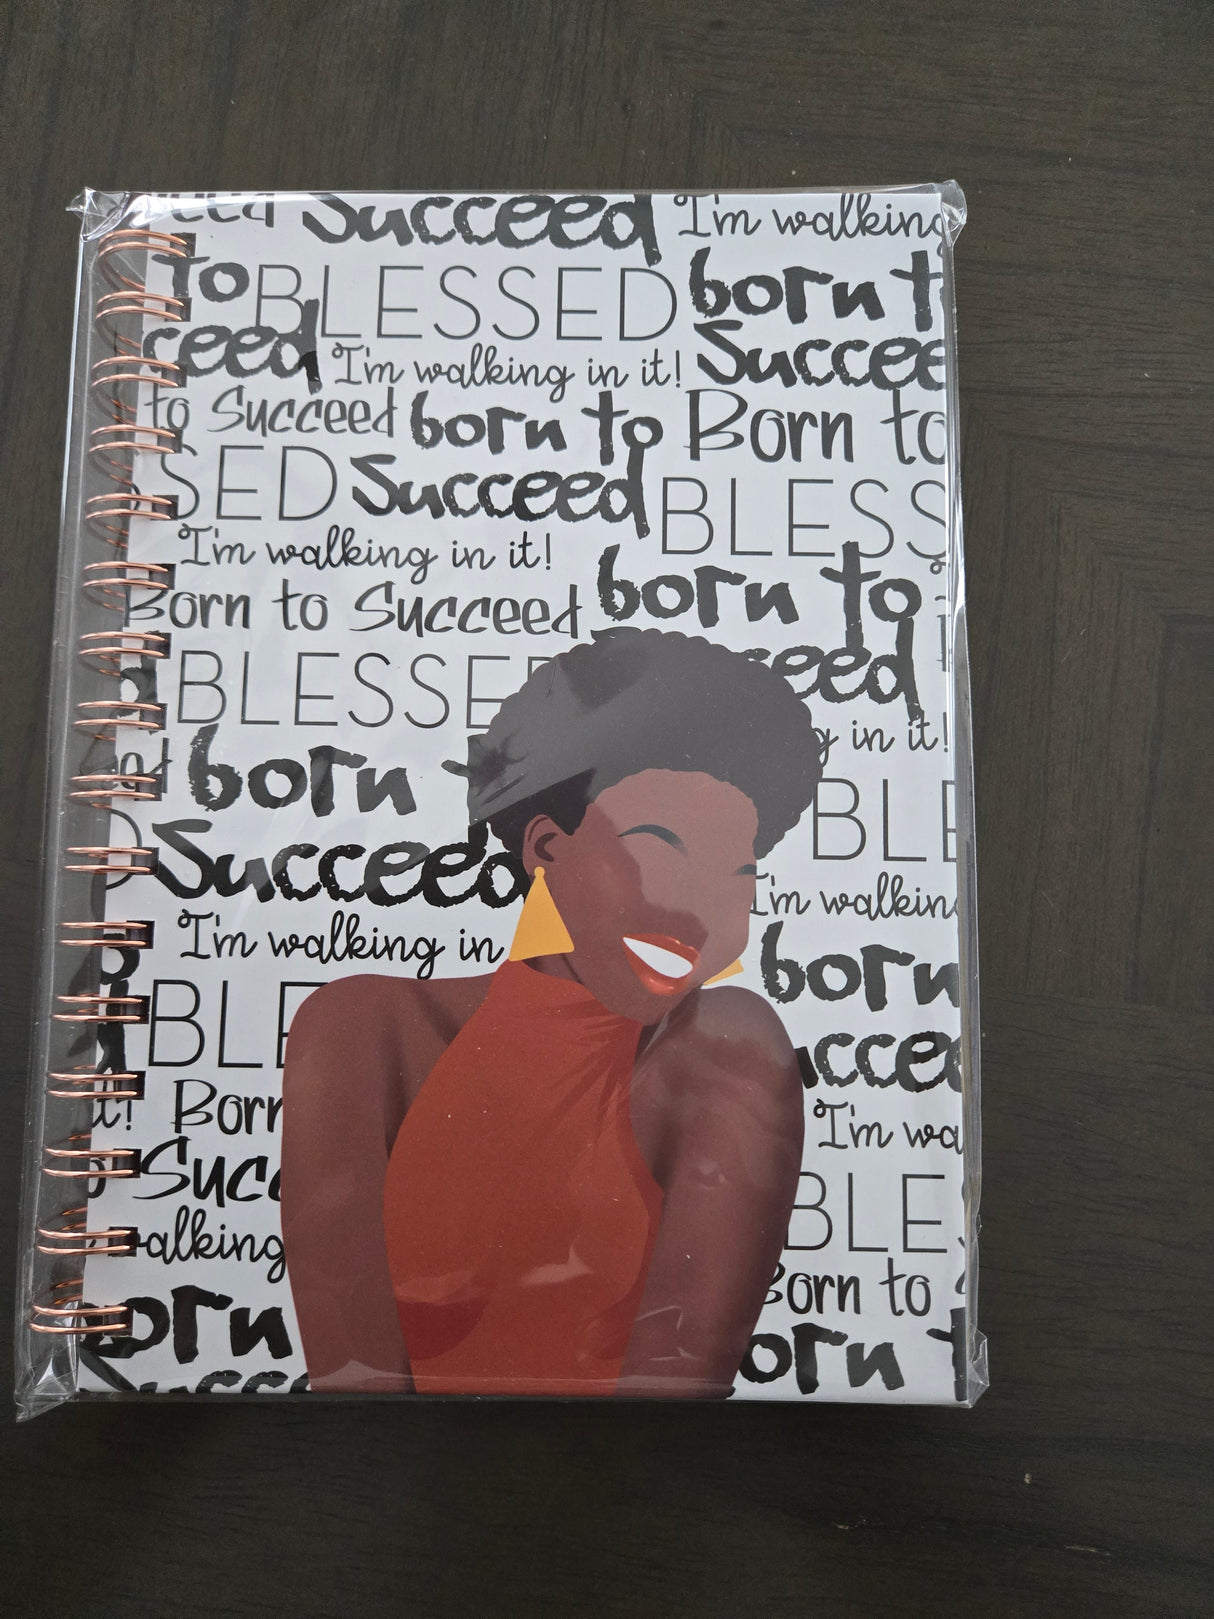 Succeed I'm walking
to BLESSED born t
ceed I'm walking in it! Succee
to Succeed born to Born to
SED Succeed BLESS
I'm walking in it!
Born to Succeed born to
BLESSE eed
g in it!
born
BLE
Succeed
I'm walkin
I'm walking in
born
BLE
ccee
it! Born
I'm wa
Succ
BLE
walking
Born to
orn orn